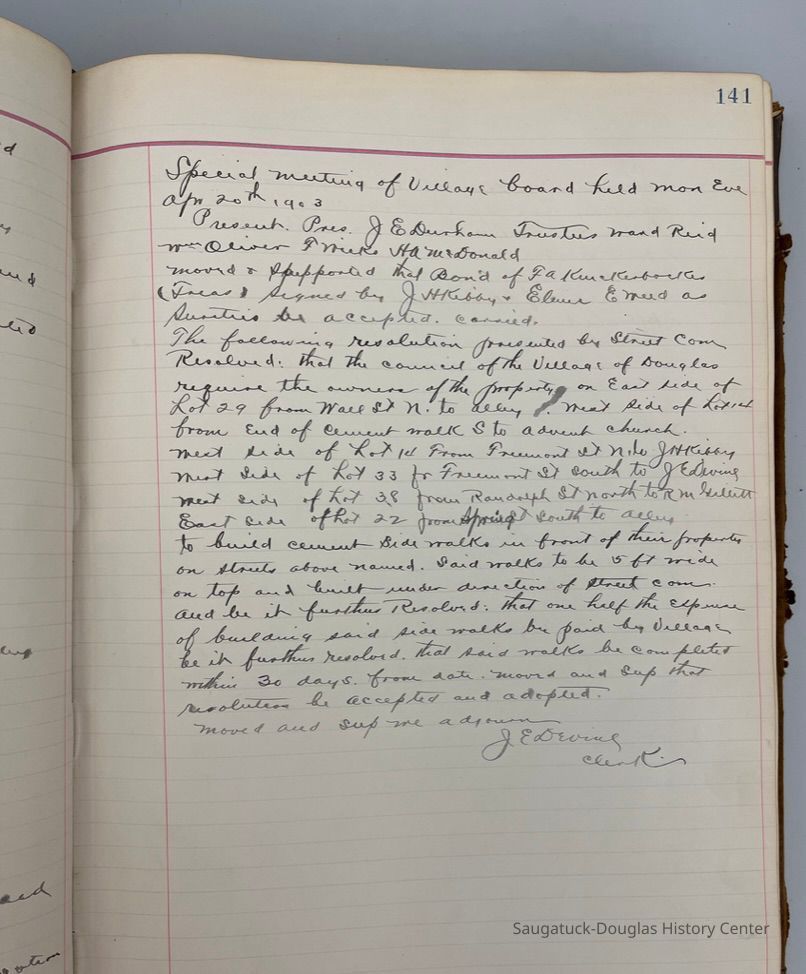 141
Special meeting of Village board held mon Eve
Apr 20th 1903
Present. Pres. J E Durham Trustees Ward Reid
Wm Oliver F Wicks HA McDonald
moved & Supported that Bond of F A Knickerbocker
(Treas) Signed by J H Kibby & Elmer E Weed as
Sureties be accepted. carried.
The following resolution presented by Street Com
Resolved: that the council of the Village of Douglas
require the owners of the property on East side of
Lot 29 from Wall St N. to alley. West side of Lot 14
from End of cement walk S to advent church.
West side of Lot 14 From Freemont St N to J H Kibby
West Side of Lot 33 fr Freemont St South to J E Devine
West side of Lot 38 from Randolph St north to R M Gillett
East side of Lot 22 from Spring St South to alley
to build cement Side walks in front of their property
on streets above named. Said walks to be 5 ft wide
on top and built under direction of Street com.
and be it further Resolved: that one half the Expense
of building said side walks be paid by Village
be it further resolved. that said walks be completed
within 30 days. from date. moved and Sup that
resolution be accepted and adopted.
moved and sup we adjourn
J E Devine
Clerk
Saugatuck-Douglas History Center